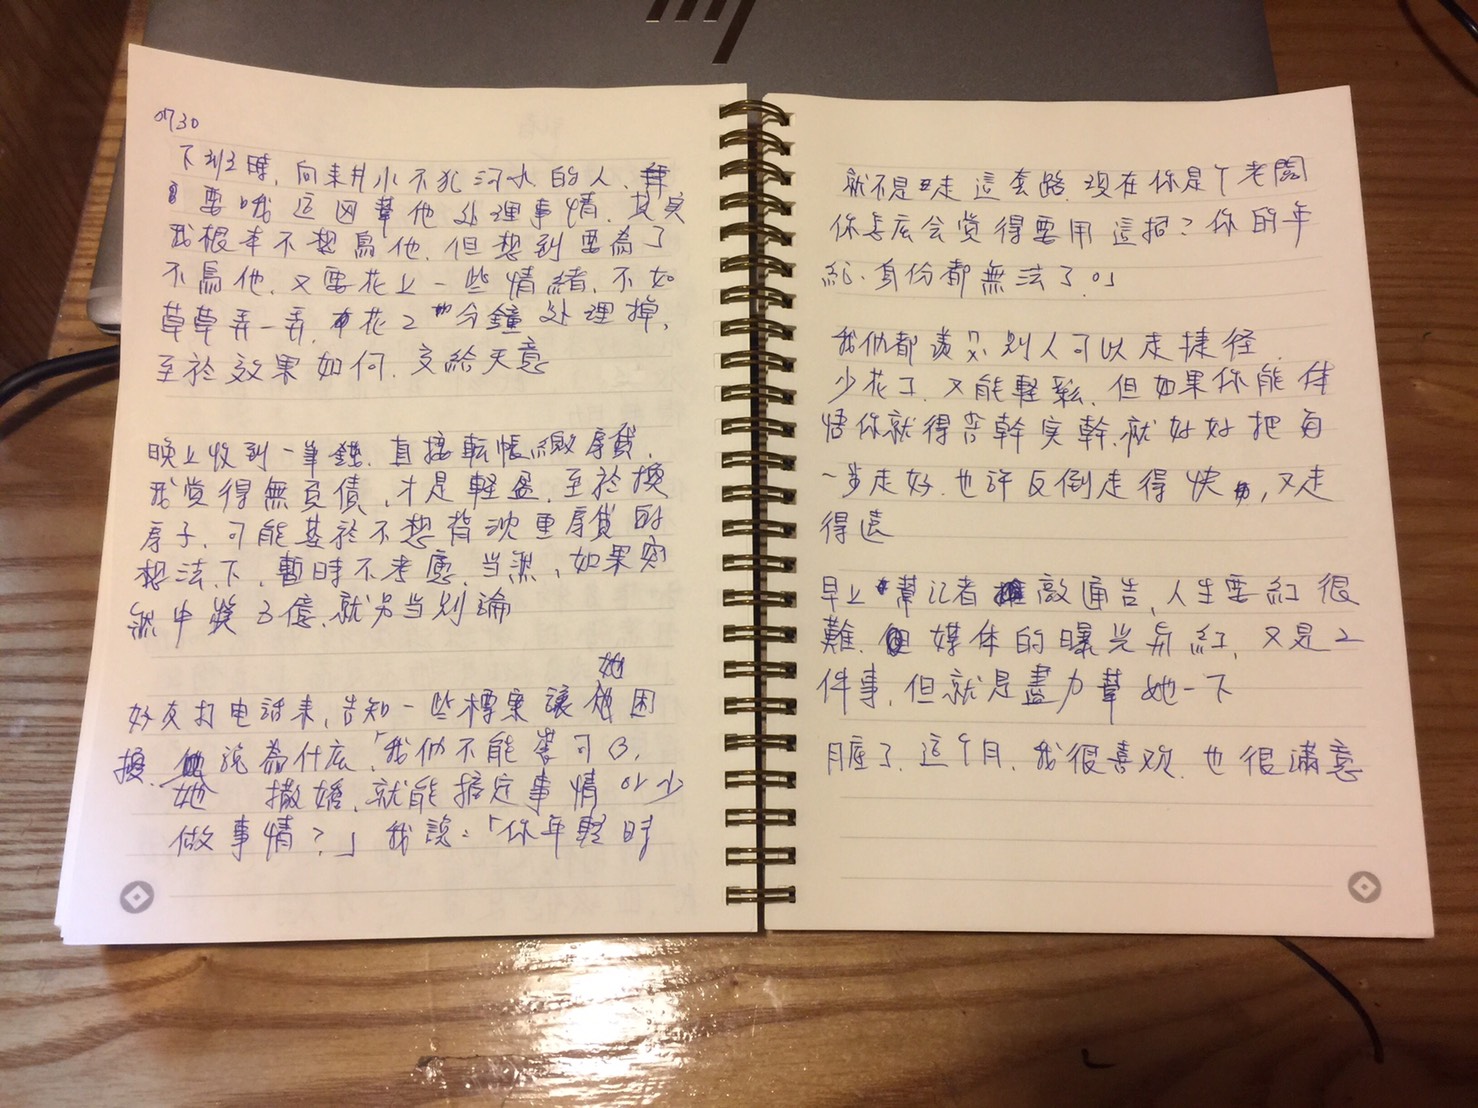 0730
下班時，向來井水不犯河水的人，
要哦這図幫他处理事情，其実
我根本不想寫他，但想到要為了
不寫他，又要花上一些情緒，不如
草草弄一弄，花2分鐘处理掉，
至於效果如何，交給天意
晚上收到一筆錢，直接転帳繳房貸，
我覚得無負債，才是輕盈，至於換
房子，可能基於不想背沈重房貸的
想法下，暫時不考慮，当然，如果突
然中獎3億，就另当別論
她
好友打电話來，告知一些標案讓困
擾，她說為什広「我们不能学可以，
撒嬌，就能搞定事情or少
做事情？」我說：「你年輕時
就不是走這套路，現在你是丫老闆
你怎広会覚得要用這招？你的年
紀、身份都無法了。」
我们都羨別人可以走捷径，
少花工，又能輕鬆，但如果你能体
悟你就得苦幹実幹，就好好把每
一步走好，也許反倒走得快，又走
得遠
早上幫记者敲通告，人生要紅很
難，但媒体的曝光与紅，又是2
件事，但就是盡力幫她一下
月底了，這个月，我很喜欢，也很滿意